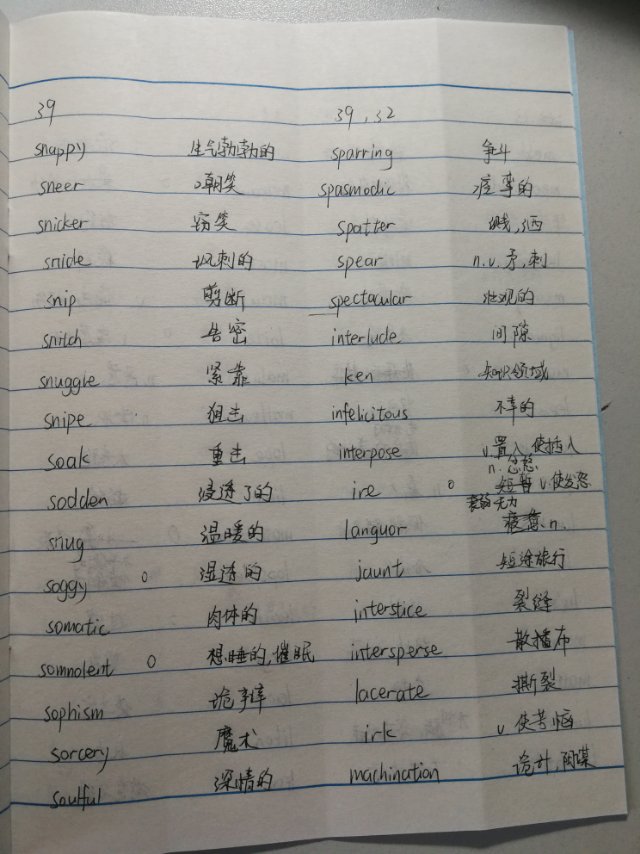 39 39,32
snappy 生气勃勃的 sparring 争斗
sneer 嘲笑 spasmodic 痉挛的
snicker 窃笑 spatter 溅,洒
snide 讽刺的 spear n.v.矛,刺
snip 剪断 spectacular 壮观的
snitch 告密 interlude 间隙
snuggle 紧靠 ken 知识领域
snipe 狙击 infelicitous 不幸的
soak 重击 interpose v.置入,使插入
sodden 浸透了的 ire n.忿怒 v.使发怒
snug 温暖的 languor 疲惫.n.
soggy 湿透的 jaunt 短途旅行
somatic 肉体的 interstice 裂缝
somnolent 想睡的,催眠 intersperse 散播布
sophism 诡辩 lacerate 撕裂
sorcery 魔术 irk v 使苦恼
soulful 深情的 machination 诡计,阴谋